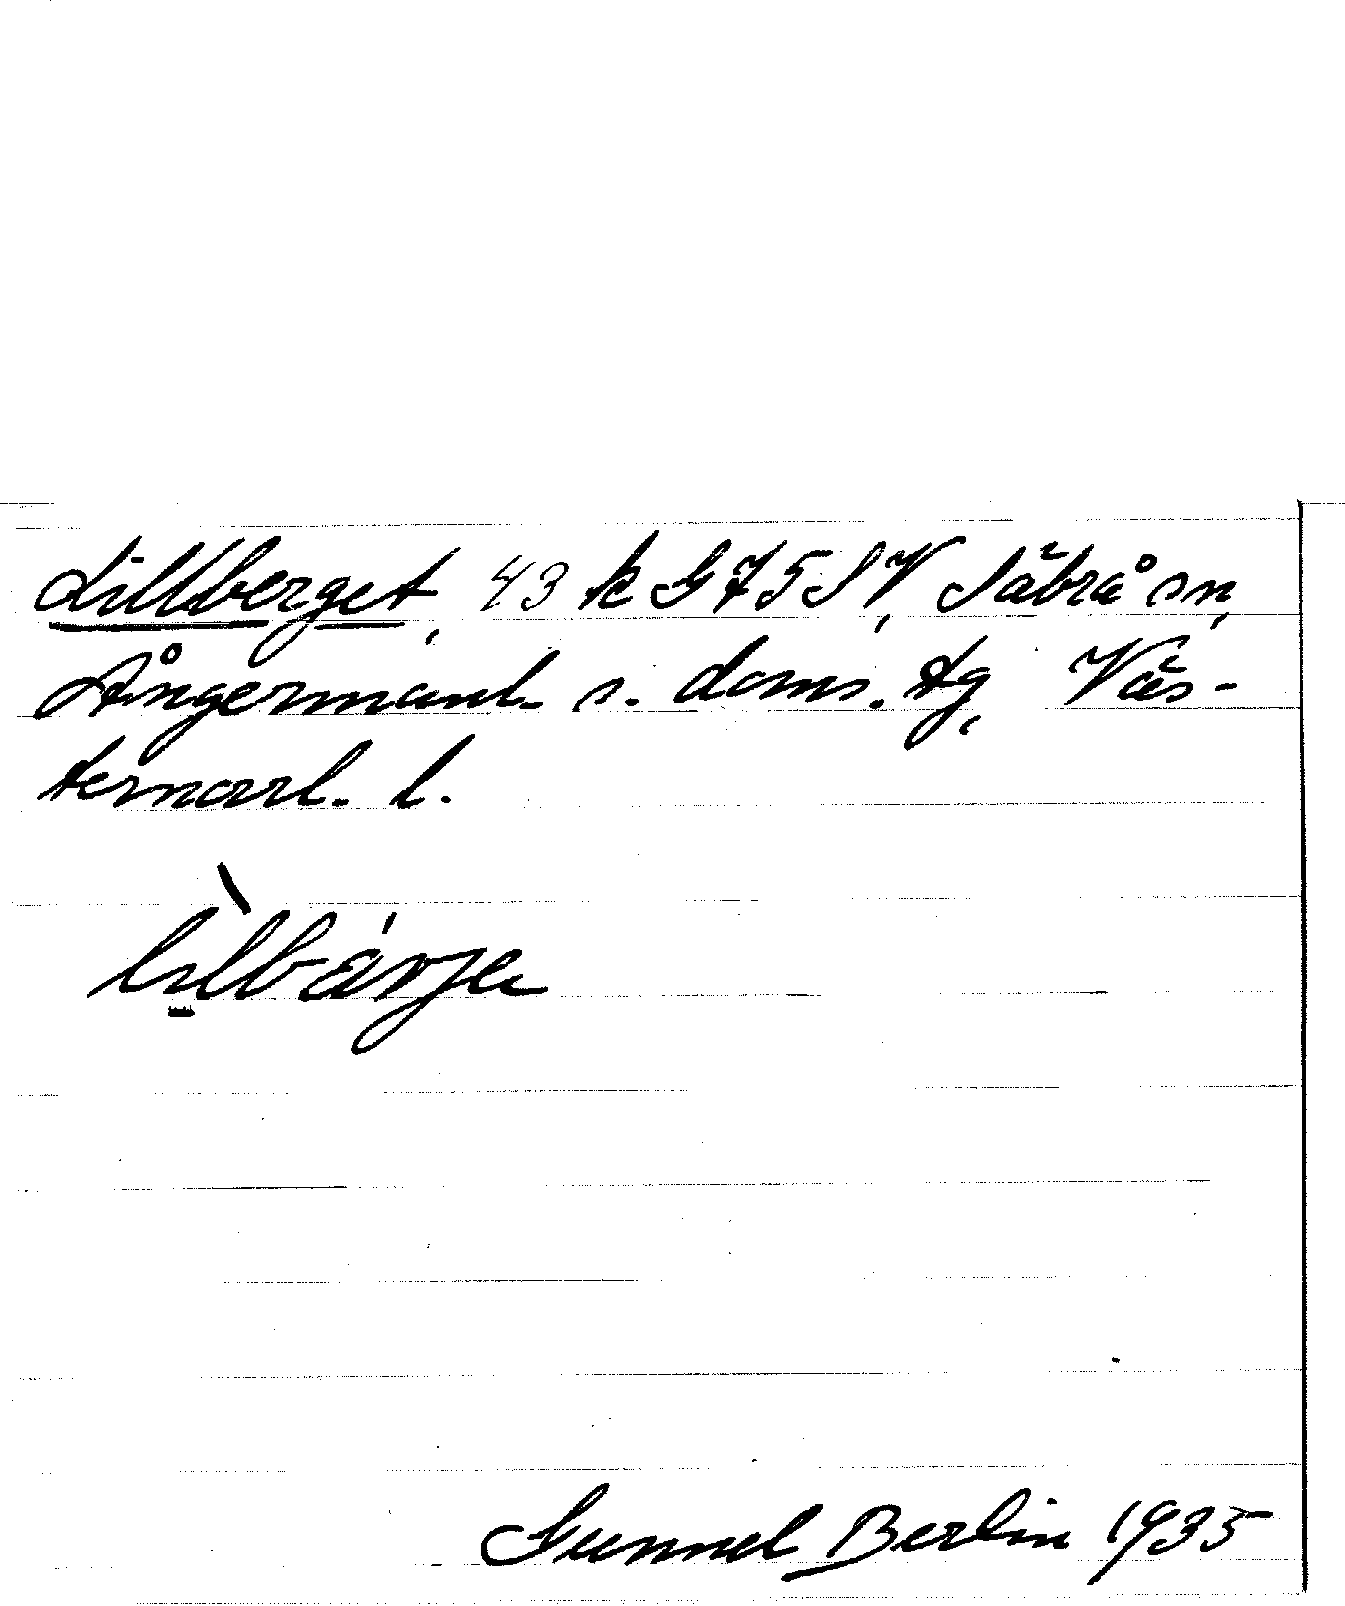 Lillberget, 43 k G 75 SV, Säbrå sn,
Ångermanl. s. doms. tg, Väs-
ternorrl. l.
Gunnel Berlin 1935